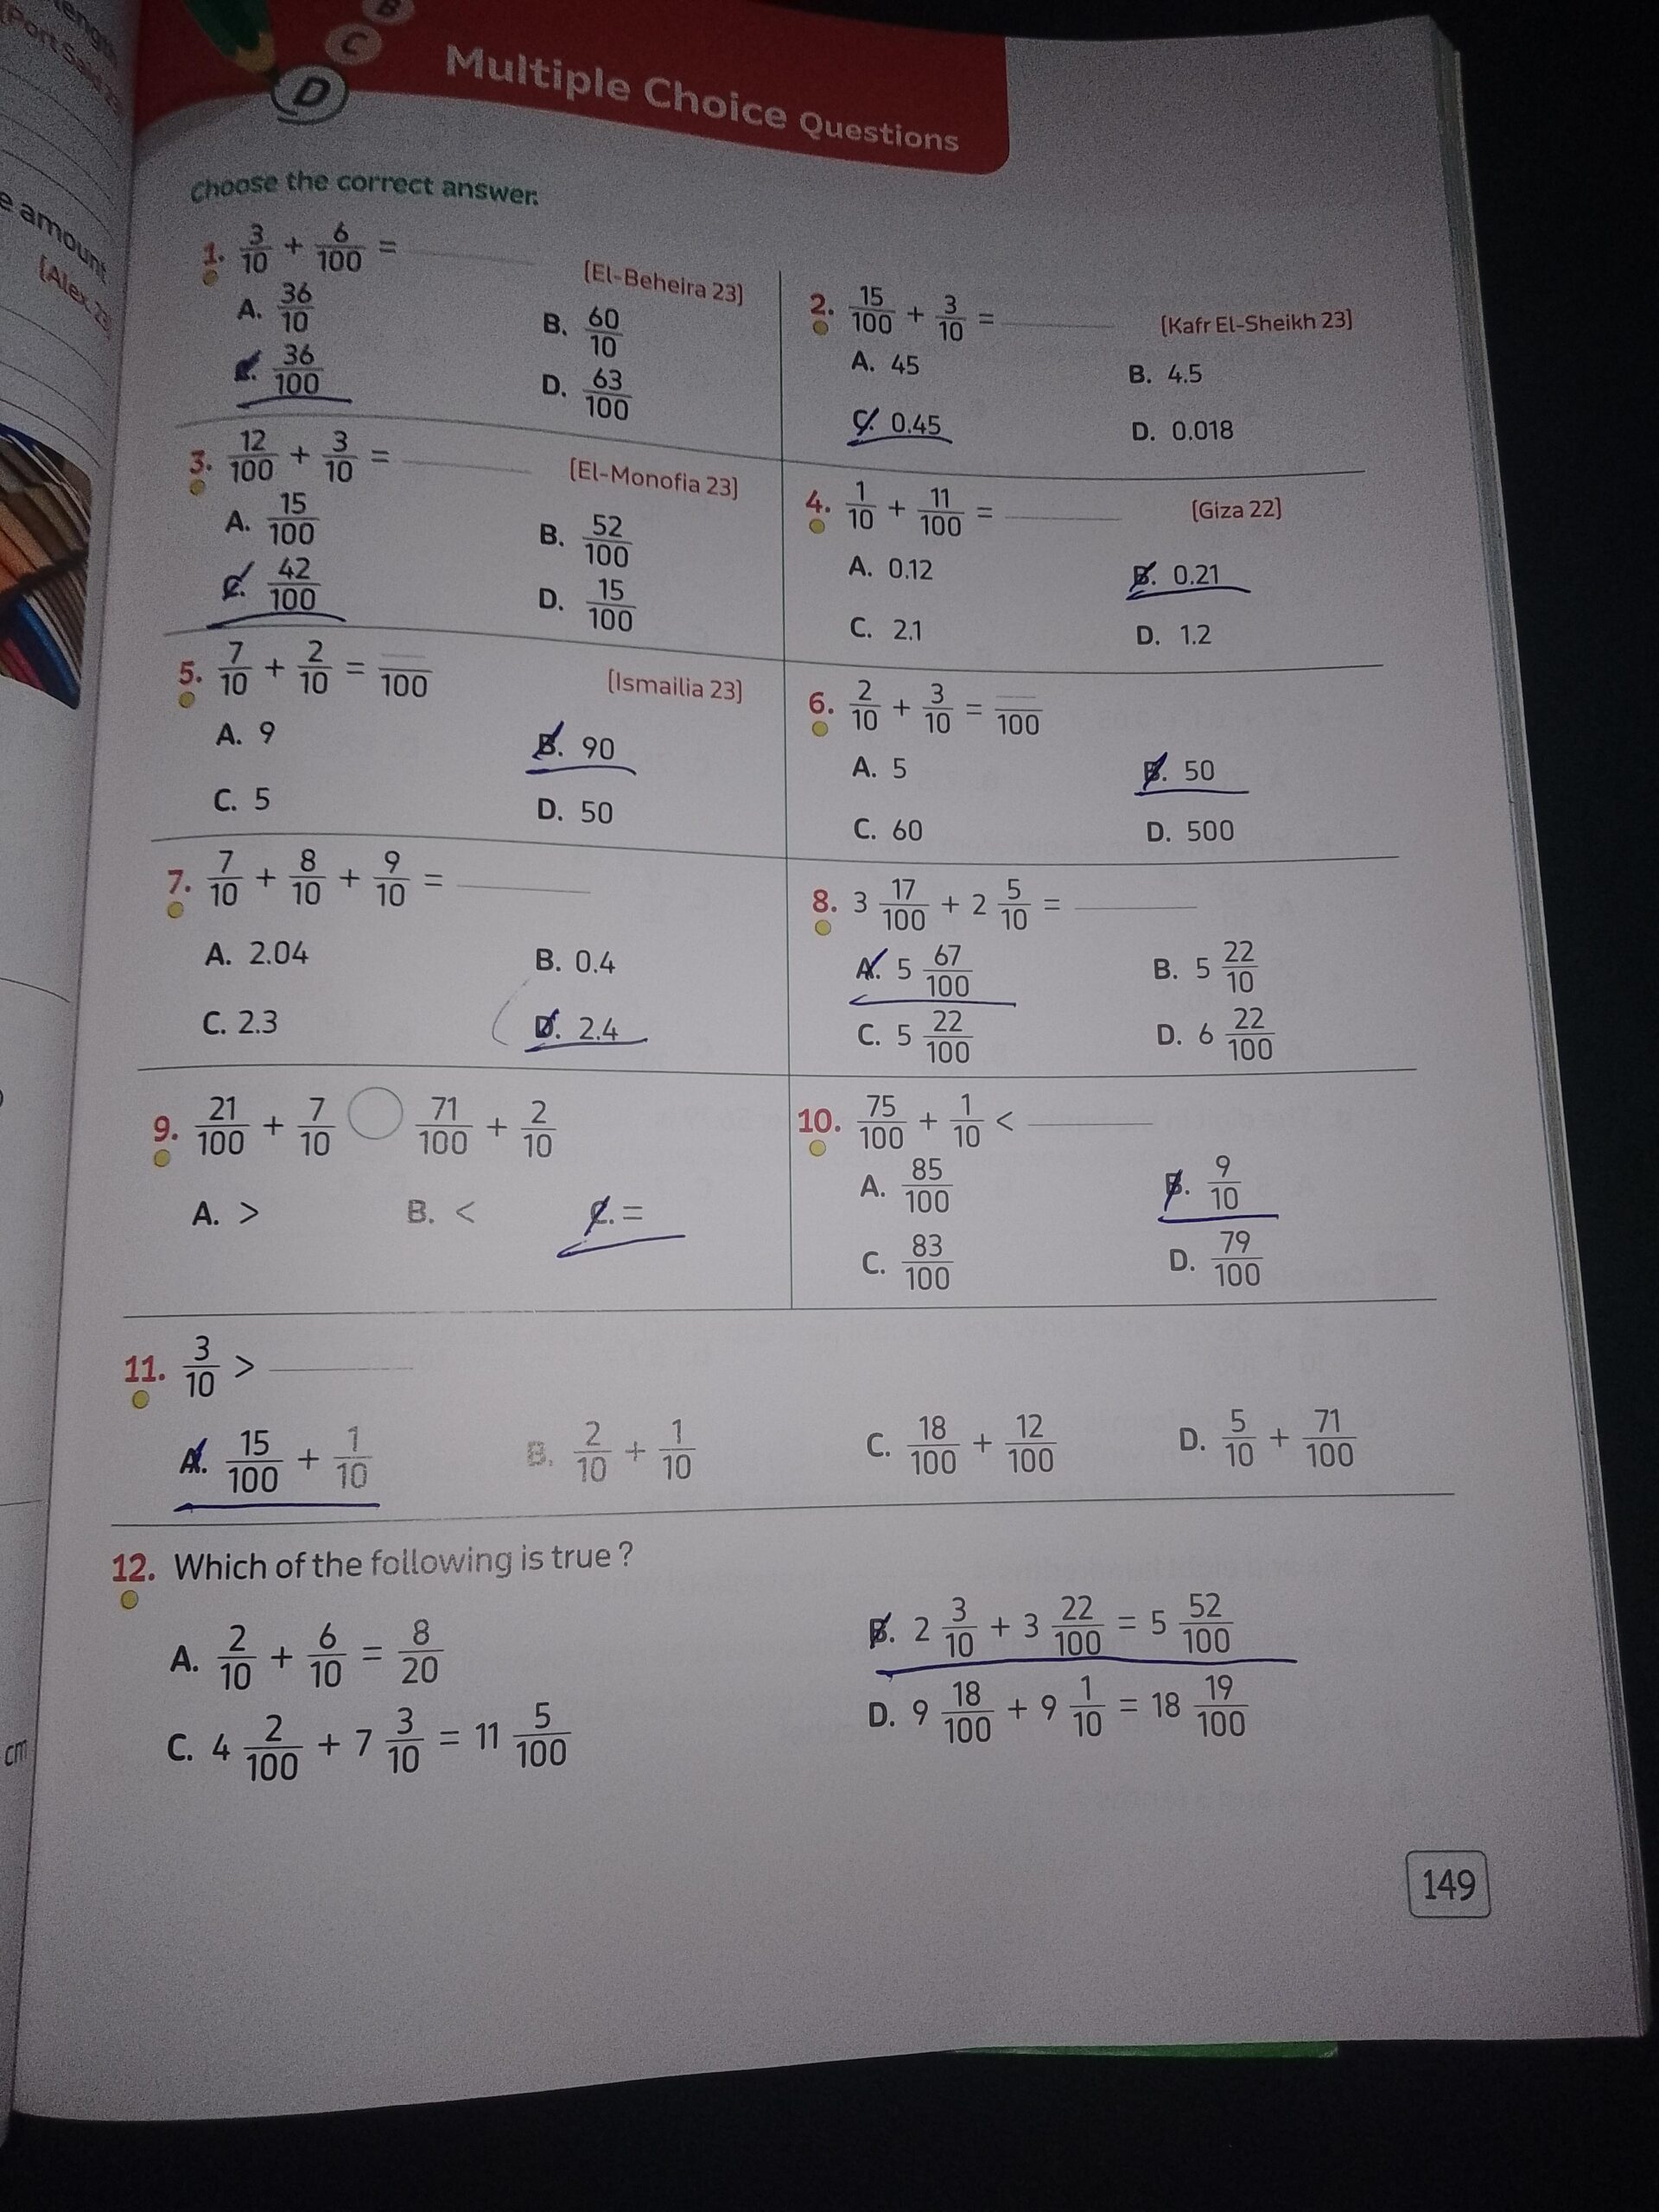 ength
(Port Said 23)
e amount
(Alex. 23)
cm
B
C
D
Multiple Choice Questions
Choose the correct answer.
1. 3/10 + 6/100 = (El-Beheira 23)
A. 36/10 B. 60/10
C. 36/100 D. 63/100
2. 15/100 + 3/10 = (Kafr El-Sheikh 23)
A. 45 B. 4.5
C. 0.45 D. 0.018
3. 12/100 + 3/10 = (El-Monofia 23)
A. 15/100 B. 52/100
C. 42/100 D. 15/100
4. 1/10 + 11/100 = (Giza 22)
A. 0.12 B. 0.21
C. 2.1 D. 1.2
5. 7/10 + 2/10 = /100 (Ismailia 23)
A. 9 B. 90
C. 5 D. 50
6. 2/10 + 3/10 = /100
A. 5 B. 50
C. 60 D. 500
7. 7/10 + 8/10 + 9/10 =
A. 2.04 B. 0.4
C. 2.3 D. 2.4
8. 3 17/100 + 2 5/10 =
A. 5 67/100 B. 5 22/10
C. 5 22/100 D. 6 22/100
9. 21/100 + 7/10 ◯ 71/100 + 2/10
A. > B. < C. =
10. 75/100 + 1/10 <
A. 85/100 B. 9/10
C. 83/100 D. 79/100
11. 3/10 >
A. 15/100 + 1/10 B. 2/10 + 1/10 C. 18/100 + 12/100 D. 5/10 + 71/100
12. Which of the following is true ?
A. 2/10 + 6/10 = 8/20 B. 2 3/10 + 3 22/100 = 5 52/100
C. 4 2/100 + 7 3/10 = 11 5/100 D. 9 18/100 + 9 1/10 = 18 19/100
149